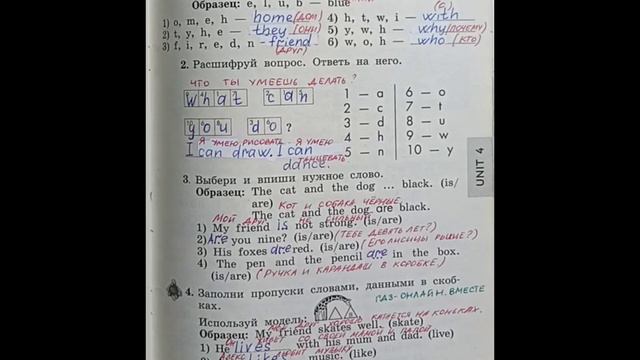 Образец: e, l, u, b — blue
1) o, m, e, h — home (ДОМ) 4) h, t, w, i — with (С)
2) t, y, h, e — they (ОНИ) 5) y, w, h — why (ПОЧЕМУ)
3) f, i, r, e, d, n — friend (ДРУГ) 6) w, o, h — who (КТО)
2. Расшифруй вопрос. Ответь на него.
ЧТО ТЫ УМЕЕШЬ ДЕЛАТЬ?
what can 1 — a 6 — o
2 — c 7 — t
you do? 3 — d 8 — u
Я УМЕЮ РИСОВАТЬ. Я УМЕЮ ТАНЦЕВАТЬ 4 — h 9 — w
I can draw. I can dance. 5 — n 10 — y
UNIT 4
3. Выбери и впиши нужное слово.
Образец: The cat and the dog ... black. (is/
are) КОТ И СОБАКА ЧЁРНЫЕ.
The cat and the dog are black.
МОЙ ДРУГ НЕ СИЛЬНЫЙ.
1) My friend is not strong. (is/are)
2) Are you nine? (is/are) (ТЕБЕ ДЕВЯТЬ ЛЕТ?)
3) His foxes are red. (is/are) (ЕГО ЛИСИЦЫ РЫЖИЕ?)
4) The pen and the pencil are in the box.
(is/are) (РУЧКА И КАРАНДАШ В КОРОБКЕ.)
4. Заполни пропуски словами, данными в скоб-
ках. ГДЗ-ОНЛАЙН. ВМЕСТЕ
Используй модель:
МОЙ ДРУГ ХОРОШО КАТАЕТСЯ НА КОНЬКАХ.
Образец: My friend skates well. (skate)
ОН ЖИВЕТ СО СВОЕЙ МАМОЙ И ПАПОЙ
1) He lives with his mum and dad. (live)
ЛЮБИТ МУЗЫКУ
likes music. (like)